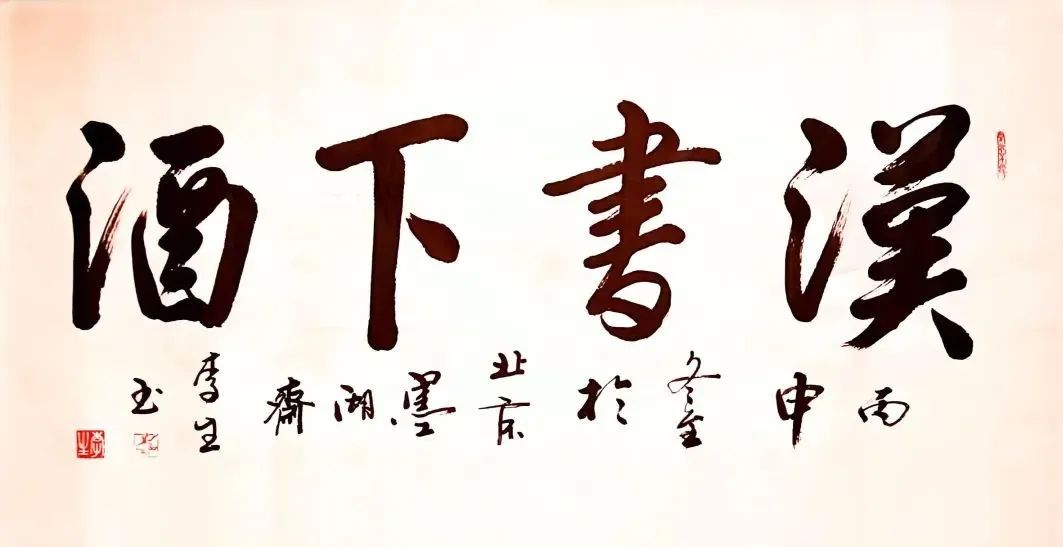 漢書下酒
丙申冬至於北京墨湖齋李生玉